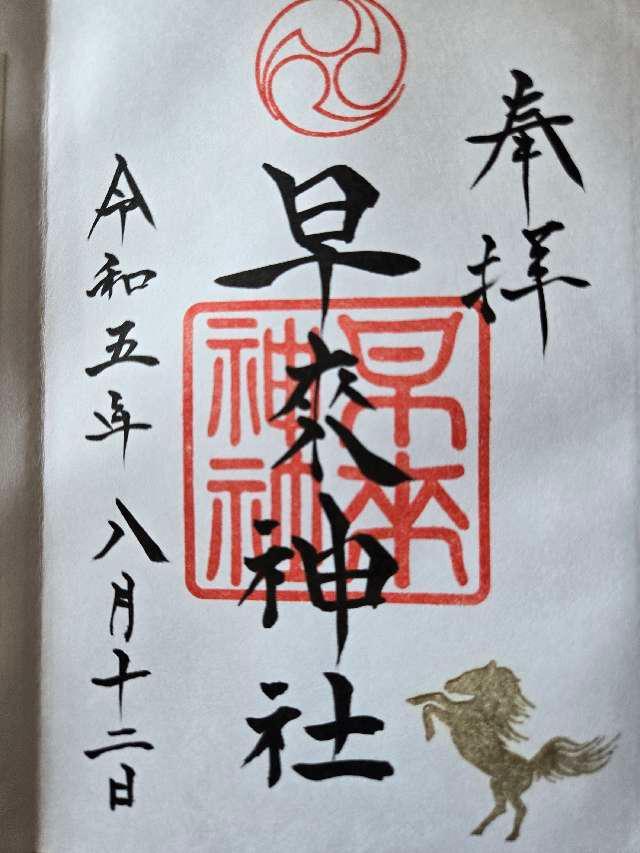 奉拝
早来神社
早来神社
令和五年八月十二日